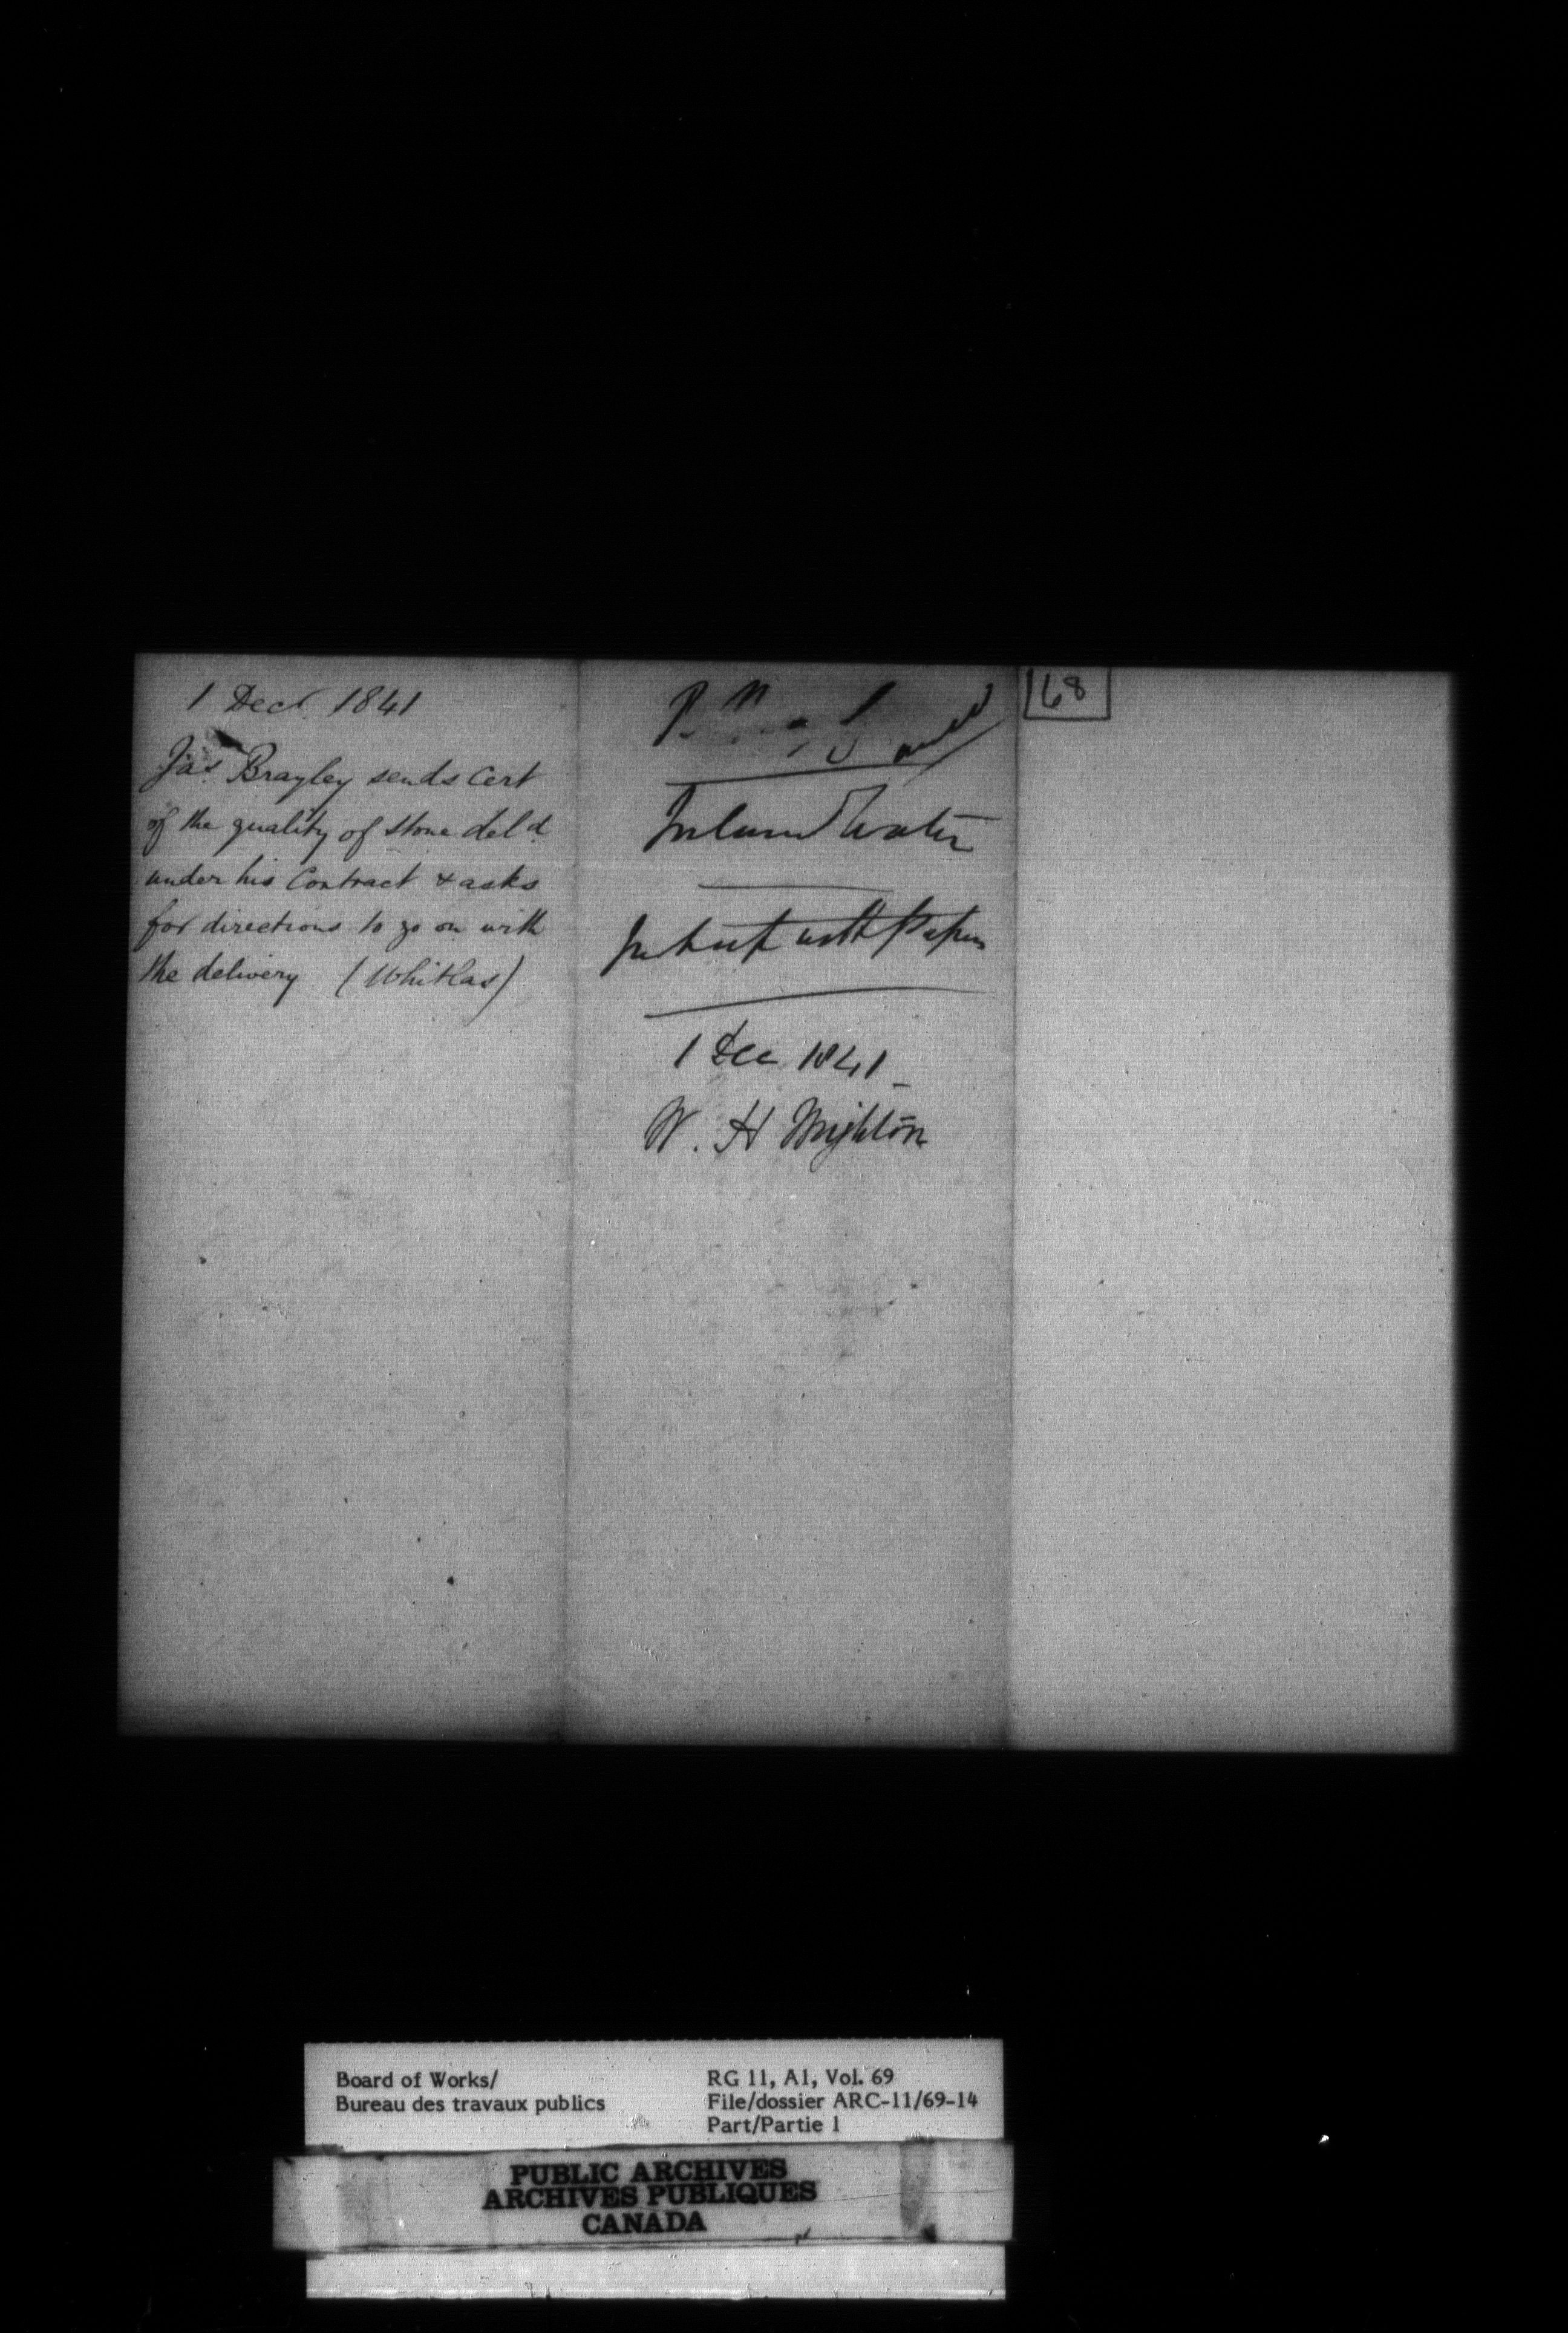 1 Decr. 1841
Jas. Brayley sends Cert
of the quality of stone deld.
under his Contract & asks
for directions to go on with
the delivery (Whitlas)
Inland Water
with Papers
1 Dec 1841
W. H Wrighton
68
Board of Works/
Bureau des travaux publics
RG 11, A1, Vol. 69
File/dossier ARC-11/69-14
Part/Partie 1
PUBLIC ARCHIVES
ARCHIVES PUBLIQUES
CANADA